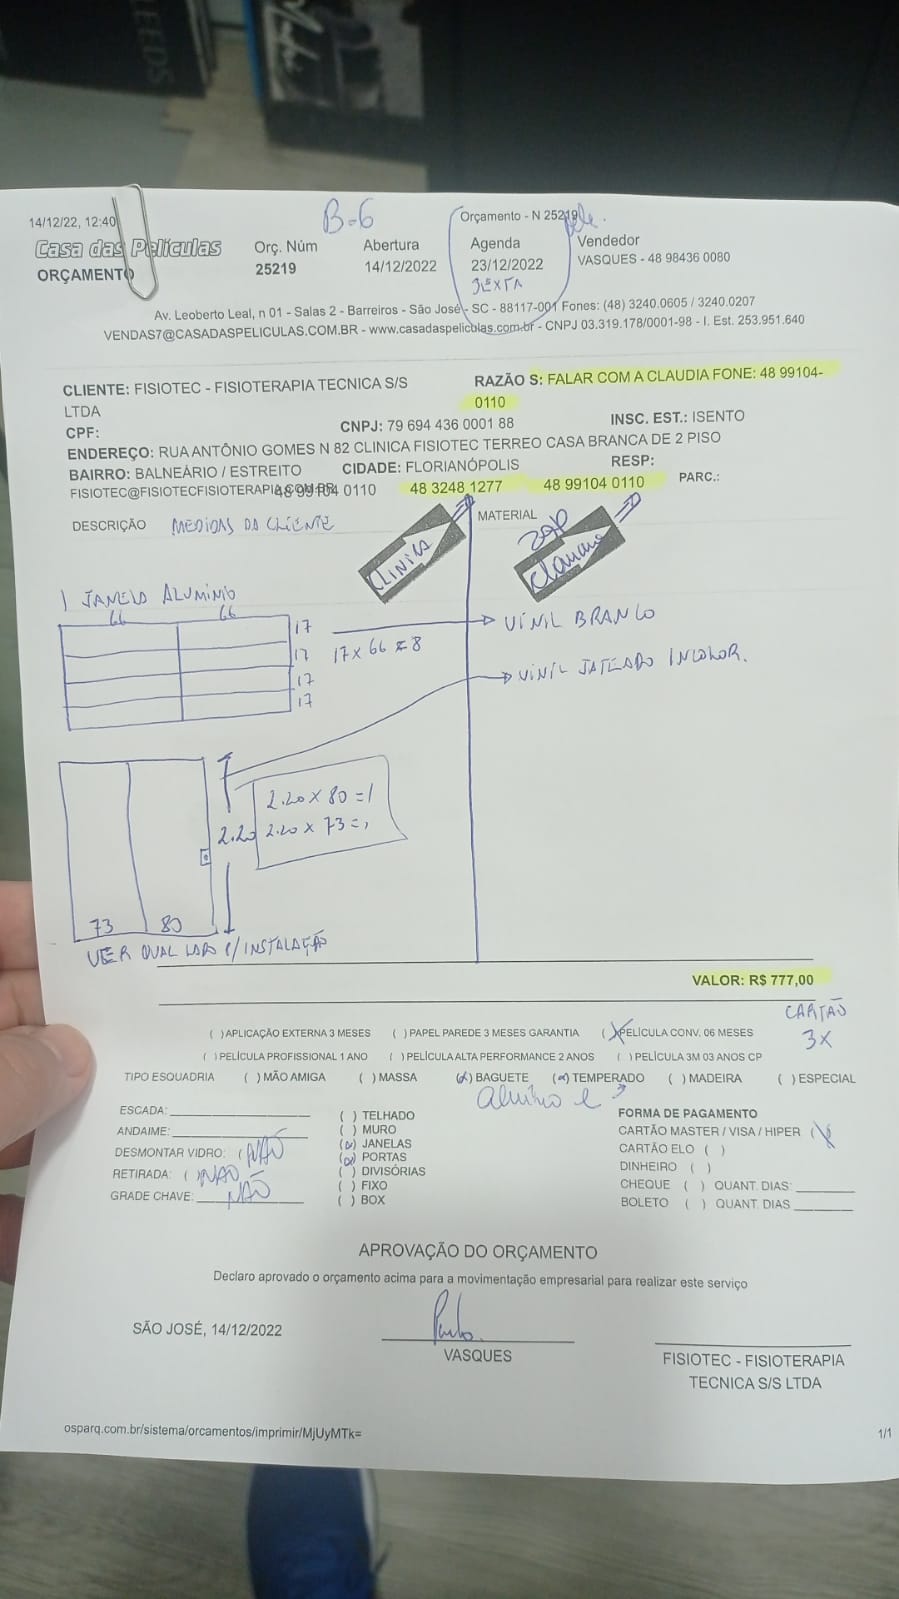 LEEDS
B-6
14/12/22, 12:40
Orçamento - N 25219
Casa das Películas
ORÇAMENTO
Orç. Núm
25219
Abertura
14/12/2022
Agenda
23/12/2022
SEXTA
Vendedor
VASQUES - 48 98436 0080
Av. Leoberto Leal, n 01 - Salas 2 - Barreiros - São José - SC - 88117-001 Fones: (48) 3240.0605 / 3240.0207
VENDAS7@CASADASPELICULAS.COM.BR - www.casadaspeliculas.com.br - CNPJ 03.319.178/0001-98 - I. Est. 253.951.640
CLIENTE: FISIOTEC - FISIOTERAPIA TECNICA S/S
LTDA
RAZÃO S: FALAR COM A CLAUDIA FONE: 48 99104-
0110
CPF:
CNPJ: 79 694 436 0001 88
INSC. EST.: ISENTO
ENDEREÇO: RUA ANTÔNIO GOMES N 82 CLINICA FISIOTEC TERREO CASA BRANCA DE 2 PISO
BAIRRO: BALNEÁRIO / ESTREITO
CIDADE: FLORIANÓPOLIS
RESP:
FISIOTEC@FISIOTECFISIOTERAPIA.COM.BR
48 99104 0110
48 3248 1277
48 99104 0110
PARC.:
DESCRIÇÃO MEDIDAS DA CLIENTE
MATERIAL
CLINICA
ZAP
1 JANELA ALUMINIO
66 66
17
17
17
17
17 x 66 = 8
VINIL BRANCO
VINIL JATEADO INCOLOR.
2.20 x 80 = 1
2.20 2.20 x 73 = 1
73 80
VER QUAL LADO P/ INSTALAÇÃO
VALOR: R$ 777,00
CARTÃO
3X
( ) APLICAÇÃO EXTERNA 3 MESES ( ) PAPEL PAREDE 3 MESES GARANTIA (X) PELÍCULA CONV. 06 MESES
( ) PELÍCULA PROFISSIONAL 1 ANO ( ) PELÍCULA ALTA PERFORMANCE 2 ANOS ( ) PELÍCULA 3M 03 ANOS CP
TIPO ESQUADRIA ( ) MÃO AMIGA ( ) MASSA (x) BAGUETE (x) TEMPERADO ( ) MADEIRA ( ) ESPECIAL
ESCADA:
ANDAIME:
DESMONTAR VIDRO: ( NÃO
RETIRADA: ( ) NÃO
GRADE CHAVE: NÃO
( ) TELHADO
( ) MURO
(x) JANELAS
(x) PORTAS
( ) DIVISÓRIAS
( ) FIXO
( ) BOX
FORMA DE PAGAMENTO
CARTÃO MASTER / VISA / HIPER (X
CARTÃO ELO ( )
DINHEIRO ( )
CHEQUE ( ) QUANT. DIAS:
BOLETO ( ) QUANT. DIAS
APROVAÇÃO DO ORÇAMENTO
Declaro aprovado o orçamento acima para a movimentação empresarial para realizar este serviço
SÃO JOSÉ, 14/12/2022
VASQUES
FISIOTEC - FISIOTERAPIA
TECNICA S/S LTDA
osparq.com.br/sistema/orcamentos/imprimir/MjUyMTk=
1/1